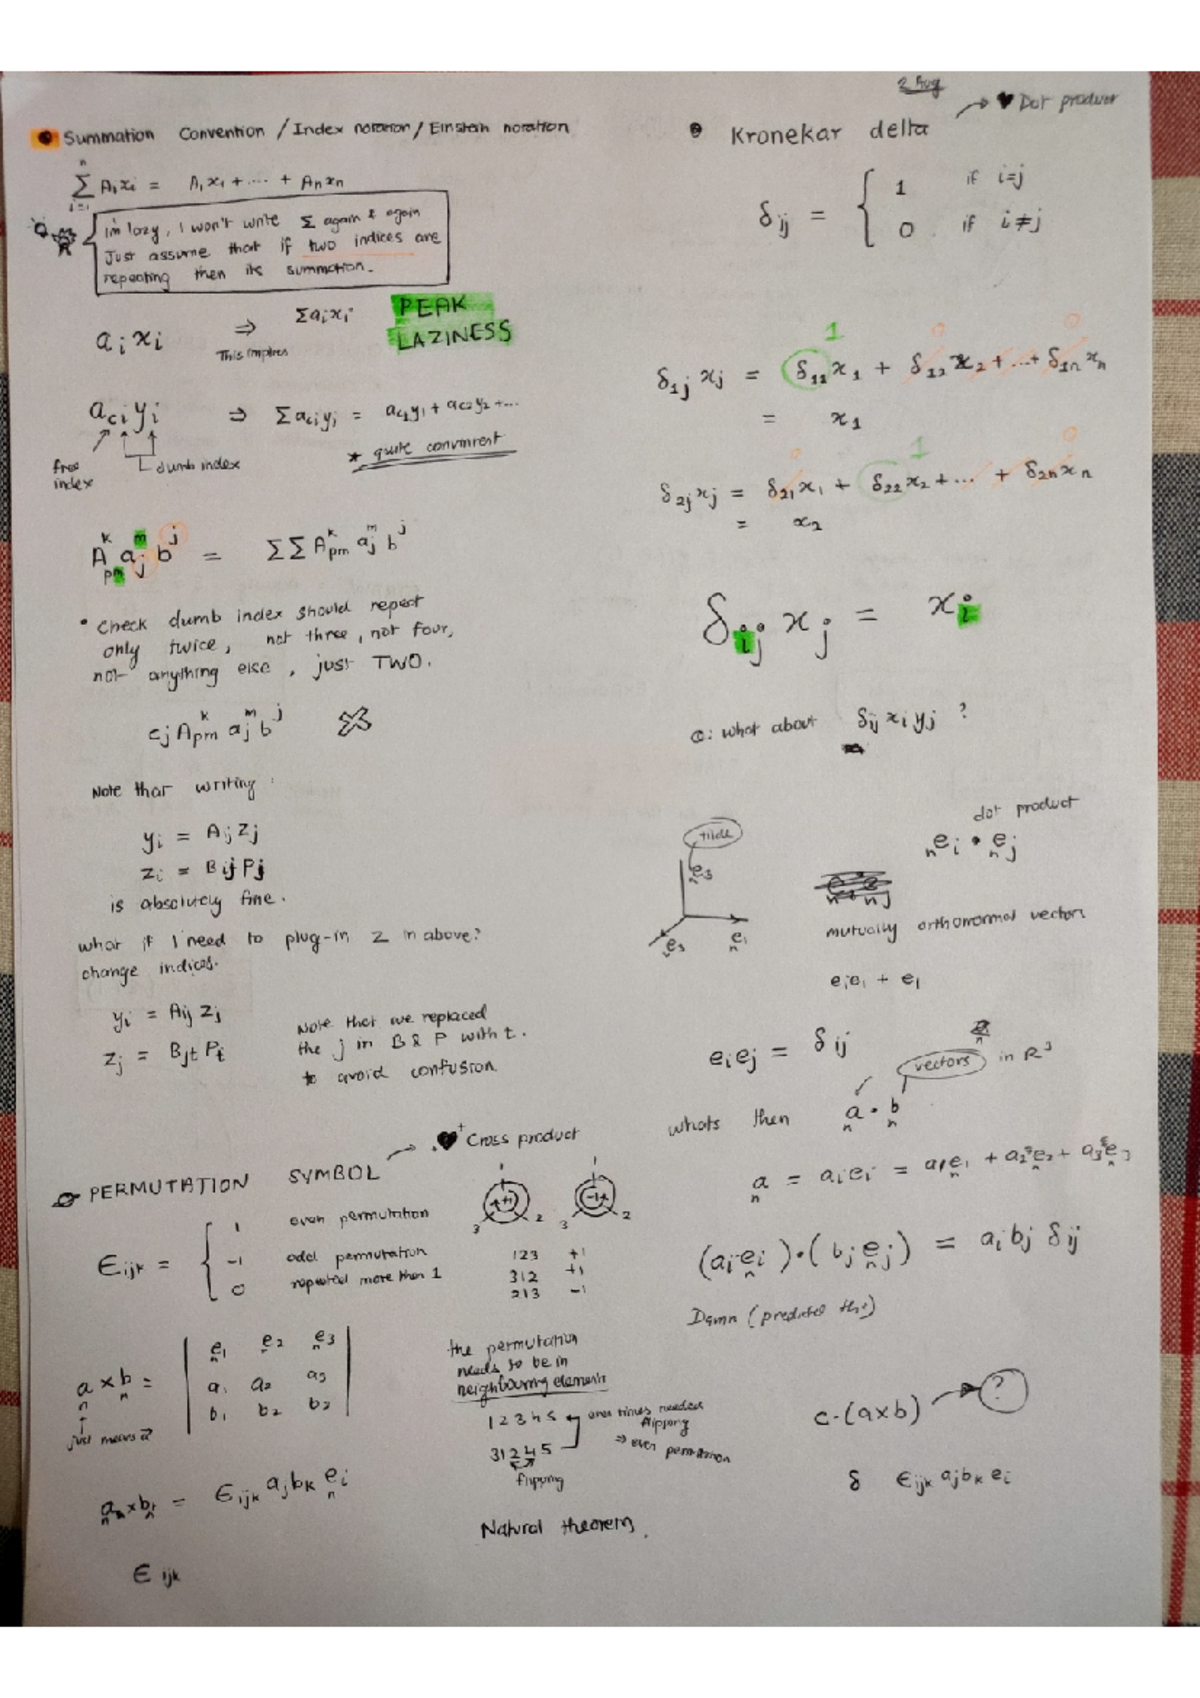 2 Aug
Summation Convention / Index notation / Einstein notation
n
Σ Aᵢxᵢ = A₁x₁ + .... + Aₙxₙ
i=1
im lazy, I won't write Σ again & again
Just assume that if two indices are
repeating then its summation.
aᵢxᵢ ⇒ Σaᵢxᵢ
This implies
PEAK
LAZINESS
a_ci yᵢ ⇒ Σ a_ci yᵢ = a_c1 y₁ + a_c2 y₂ + ...
free
index
dumb index
* quite convinient
A^k_pm a^m_j b^j = ΣΣ A^k_pm a^m_j b^j
• Check dumb index should repeat
only twice, not three, not four,
not anything else, just TWO.
c_j A^k_pm a^m_j b^j ✗
Note that writing :
yᵢ = Aᵢⱼ zⱼ
zᵢ = Bᵢⱼ Pⱼ
is absolutely fine.
what if I need to plug-in z in above?
change indices.
yᵢ = Aᵢⱼ zⱼ
zⱼ = Bⱼₜ Pₜ
Note that we replaced
the j in B & P with t.
to avoid confusion
♥ + Cross product
PERMUTATION SYMBOL
ϵᵢⱼₖ = {
1 even permutation
-1 odd permutation
0 repeated more than 1
1 +1 3 2
1 -1 3 2
123 +1
312 +1
213 -1
a × b =
e₁ e₂ e₃
a₁ a₂ a₃
b₁ b₂ b₂
just means a⃗
the permutation
needs to be in
neighbouring elements
1 2 3 4 5
3 1 2 4 5
even times needed
flipping
⇒ even permutation
flipping
a × b = ϵᵢⱼₖ aⱼ bₖ eᵢ
Natural theorem.
ϵᵢⱼₖ
♥ Dot product
Kronekar delta
δᵢⱼ = {
1 if i=j
0 if i≠j
1 0 0
δ₁ⱼ xⱼ = δ₁₁x₁ + δ₁₂x₂ + ... + δ₁ₙxₙ
= x₁
0 1 0
δ₂ⱼxⱼ = δ₂₁x₁ + δ₂₂x₂ + ... + δ₂ₙxₙ
= x₂
δᵢⱼ xⱼ = xᵢ
Q: what about δᵢⱼ xᵢ yⱼ ?
tilde
e₃
e₃ e₁
dot product
eᵢ • eⱼ
mutually orthonormal vectors
e₁e₁ + e₁
eᵢeⱼ = δᵢⱼ
vectors in R³
whats then a · b
a = aᵢeᵢ = a₁e₁ + a₂e₂ + a₃e₃
(aᵢeᵢ)·(bⱼeⱼ) = aᵢbⱼ δᵢⱼ
Damn (predicted this)
c·(a×b) ?
δ ϵᵢⱼₖ aⱼbₖ eᵢ